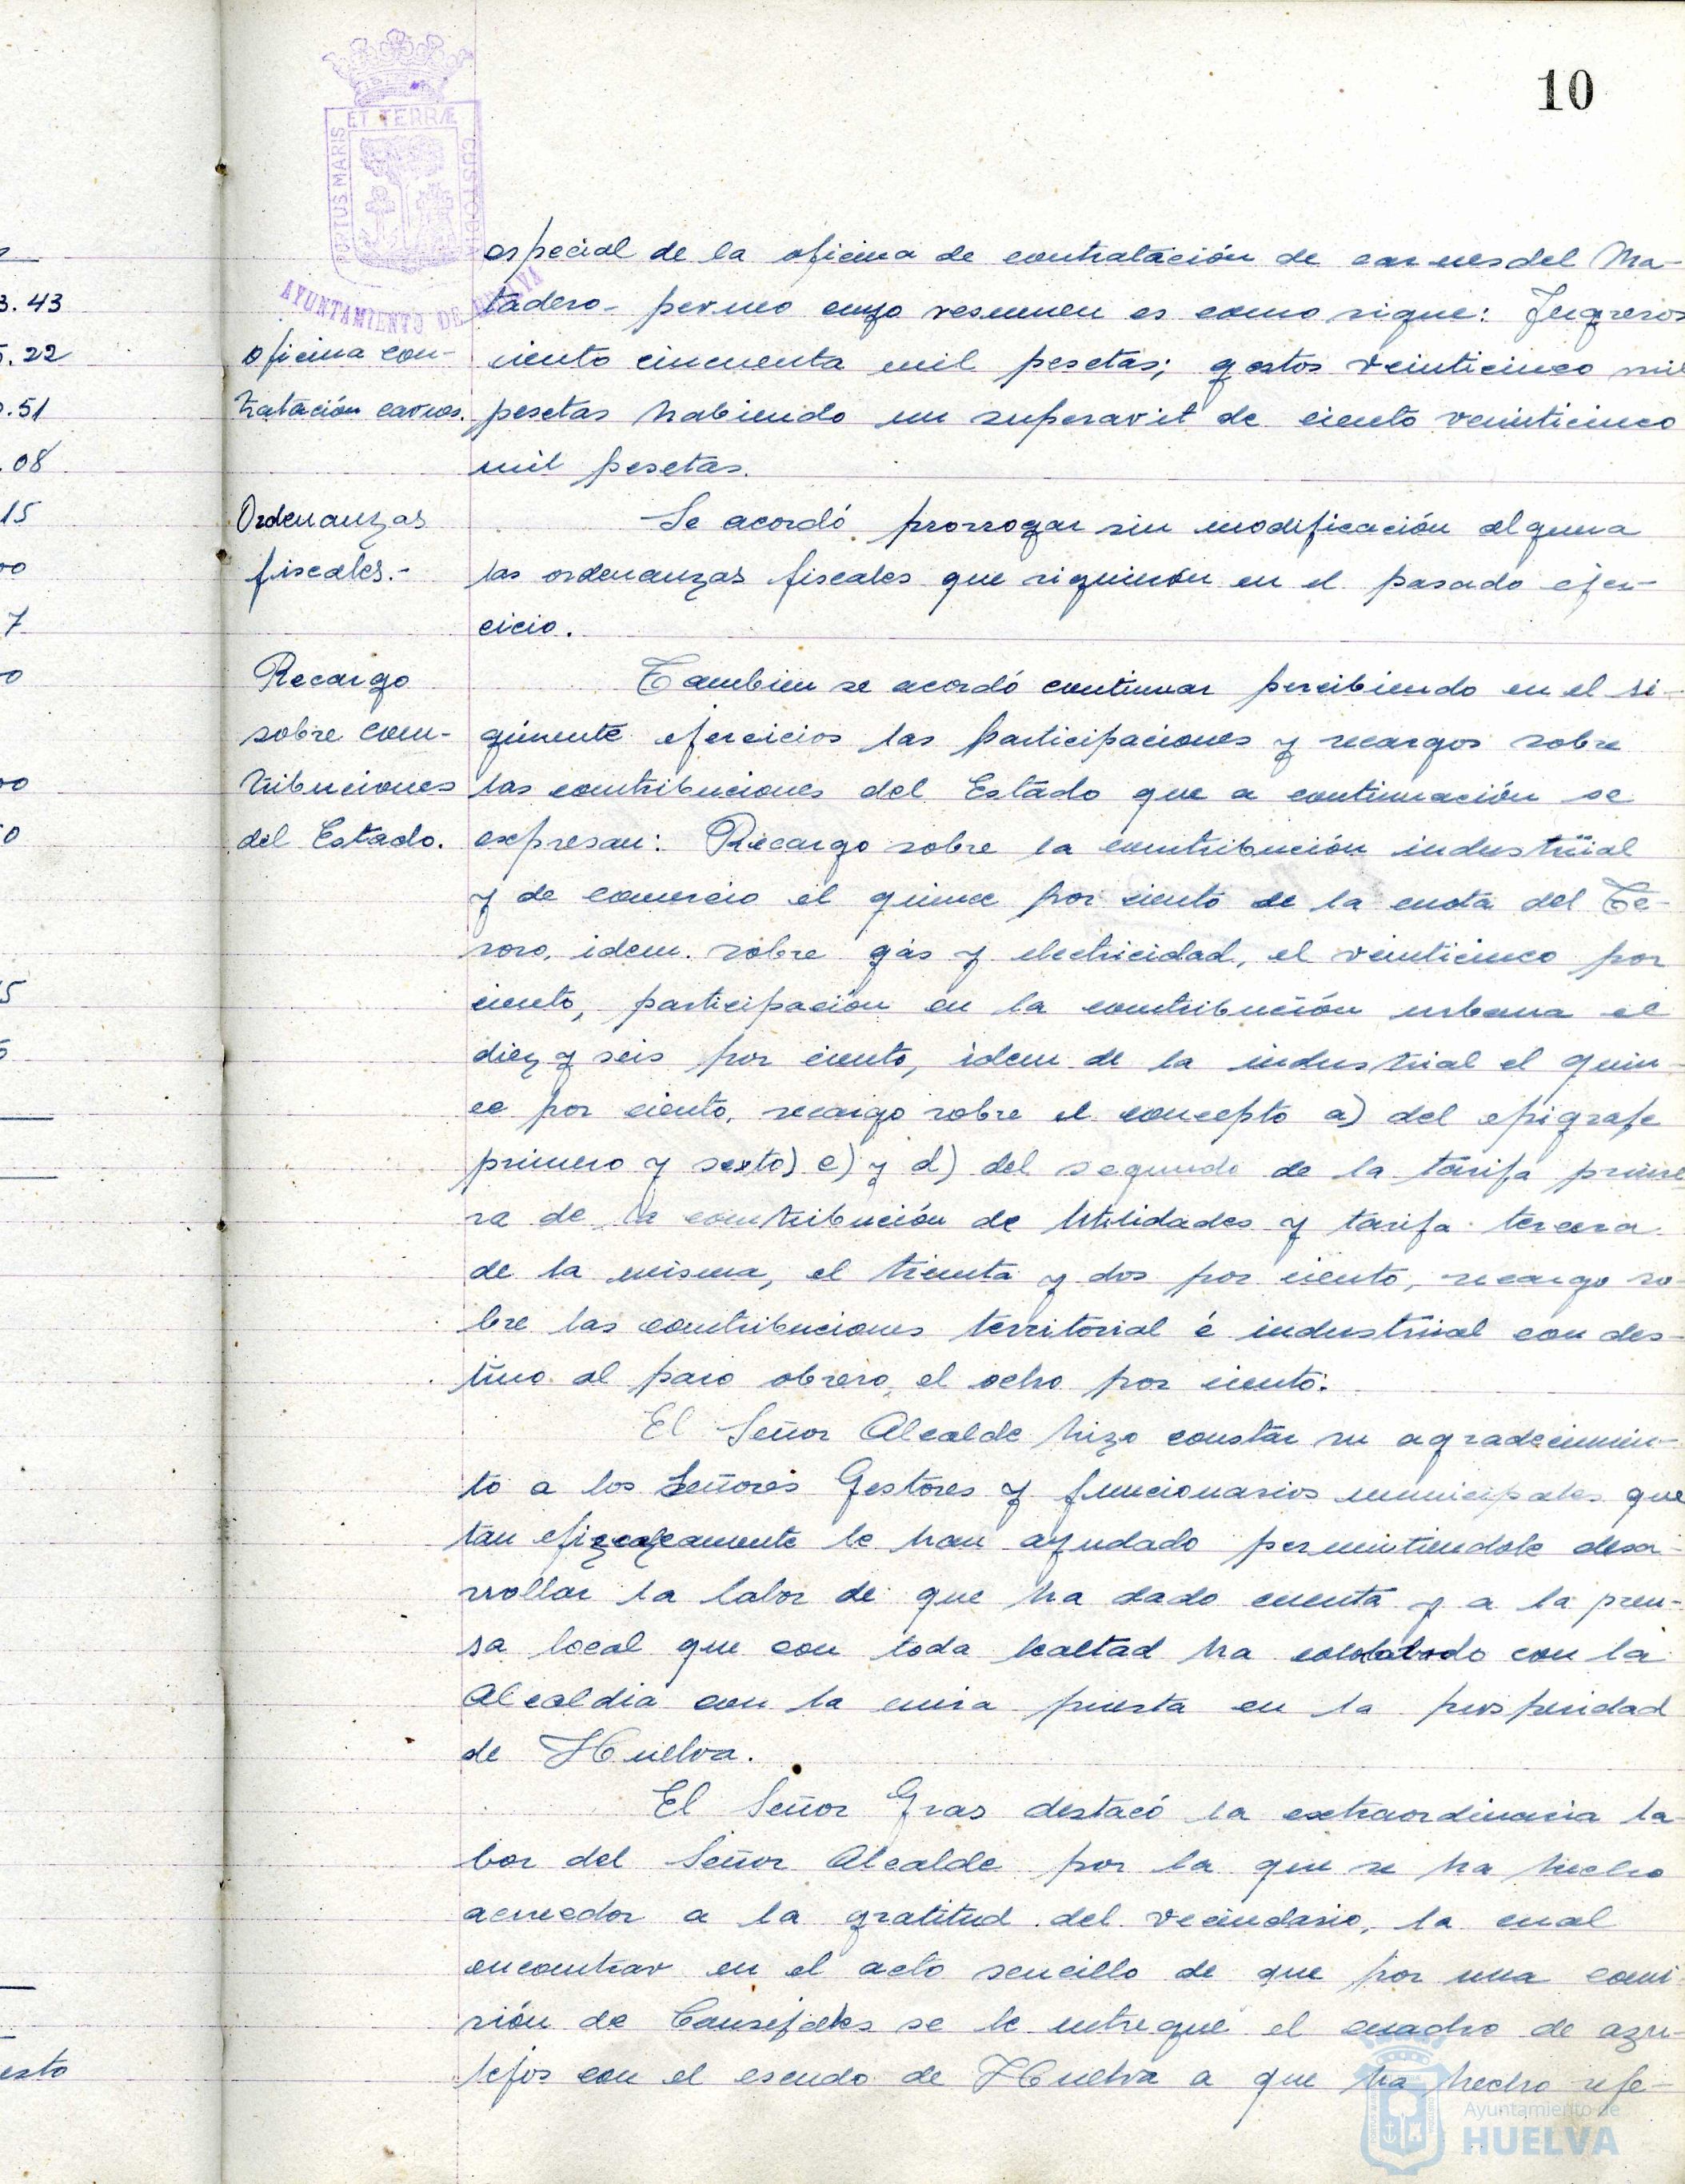 10
ET TERRÆ
PORTUS MARIS
CUSTODIA
AYUNTAMIENTO DE HUELVA
3.43
5.22
.51
.08
15
00
7
0
00
0
5
5
esto
oficina con-
tratación carnes.
Ordenanzas
fiscales.-
Recargo
sobre con-
tribuciones
del Estado.
especial de la oficina de contratación de carnes del Ma-
tadero- cuyo resumen es como sigue: Ingresos
ciento cincuenta mil pesetas; gastos veinticinco mil
pesetas habiendo un superavit de ciento veinticinco
mil pesetas.
Se acordó prorrogar sin modificación alguna
las ordenanzas fiscales que rigieron en el pasado ejer-
cicio.
Tambien se acordó continuar percibiendo en el si-
guiente ejercicios las participaciones y recargos sobre
las contribuciones del Estado que a continuación se
expresan: Recargo sobre la contribución industrial
y de comercio el quince por ciento de la cuota del Te-
soro, idem. sobre gas y electricidad, el veinticinco por
ciento, participación en la contribución urbana el
diez y seis por ciento, idem de la industrial el quin-
ce por ciento, recargo sobre el concepto a) del epigrafe
primero y sexto) c) y d) del segundo de la tarifa prime
ra de la contribución de Utilidades y tarifa tercera
de la misma, el treinta y dos por ciento, recargo so-
bre las contribuciones territorial é industrial con des-
tino al paro obrero, el ocho por ciento.
El Señor Alcalde hizo constar su agradecimien-
to a los Señores Gestores y funcionarios municipales que
tan le han ayudado permitiendole desa-
rrollar la labor de que ha dado cuenta y a la pren-
sa local que con toda lealtad ha con la
Alcaldia con la mira puesta en la prosperidad
de Huelva.
El Señor Gras destacó la extraordinaria la-
bor del Señor Alcalde por la que se ha hecho
acreedor a la gratitud del vecindario, la cual
encontrar en el acto sencillo de que por una comi-
sión de Concejales se le entregue el cuadro de azu-
lejos con el escudo de Huelva a que ha hecho refe-
Ayuntamiento de
HUELVA